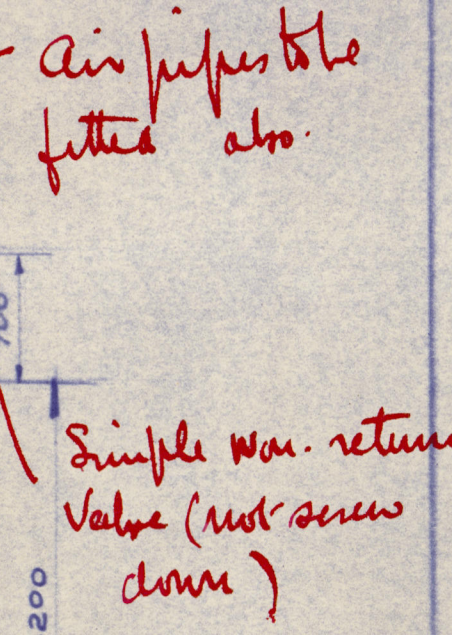 Air pipes to be
fitted also.
Simple non-return
Valve (not screw
down)
200